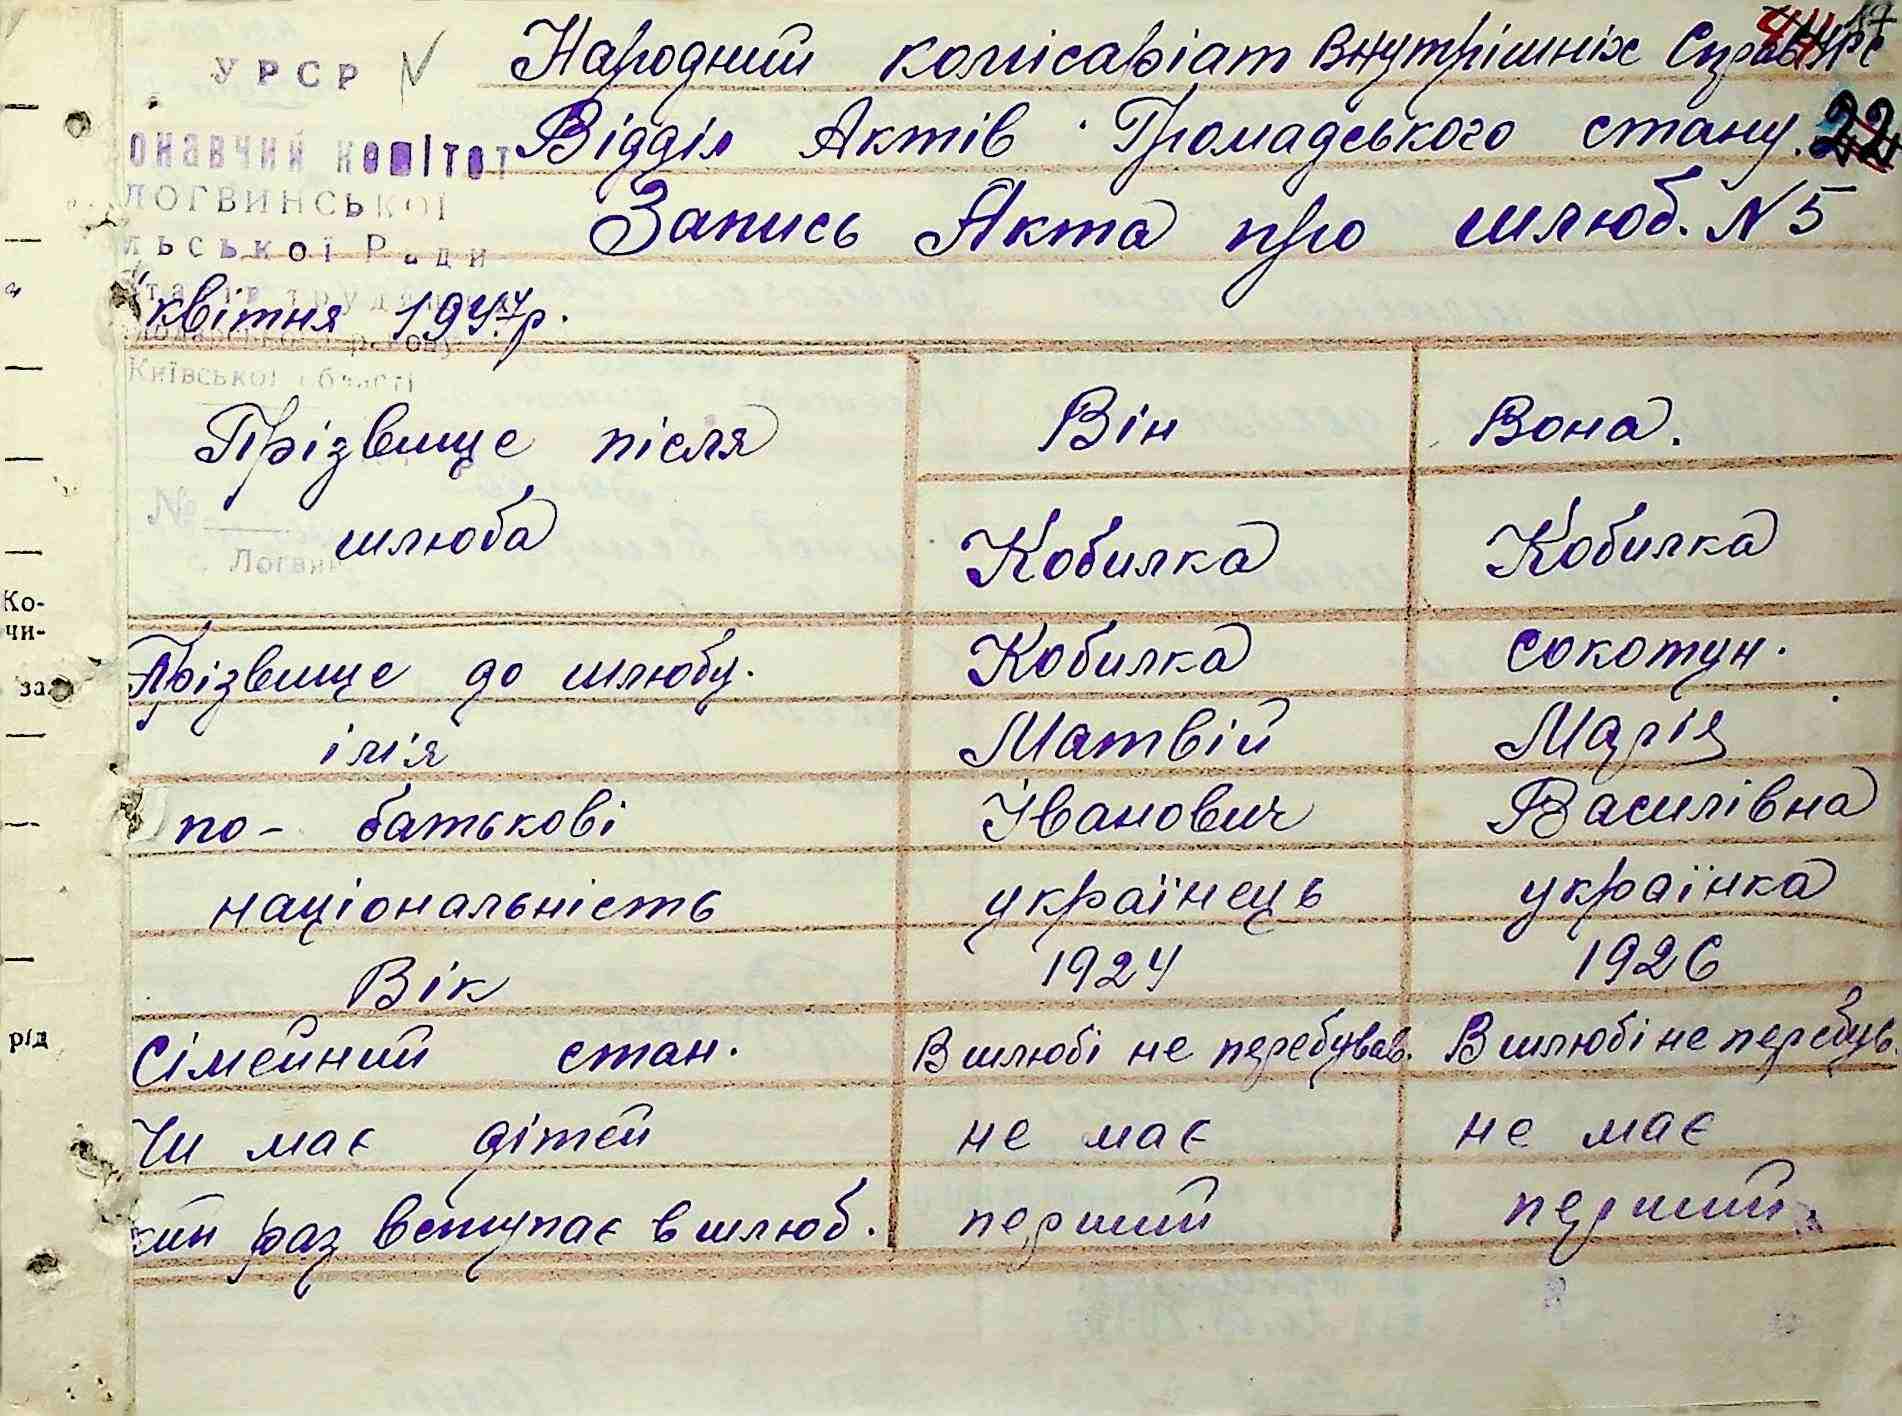 УРСР
Народний комісаріат Внутрішніх Справ УРС
онавчий комітет
Відділ Актів Громадського стану. 22
ЛОГВИНСЬКОЇ
Запись Акта про шлюб. N 5
льської Ради
квітня 1947р.
Київської області
Прізвище після шлюба
Він
Вона.
Кобилка
Кобилка
№
с. Логвин
Ко-
чи-
Прізвище до шлюбу.
Кобилка
сокотун.
за
ім'я
Матвій
Марія
по-батькові
Іванович
Василівна
національність
українець
українка
Вік
1924
1926
р/д
Сімейний стан.
В шлюбі не перебував.
В шлюбі не перебув.
Чи має дітей
не має
не має
кий раз вступає в шлюб.
перший
перший